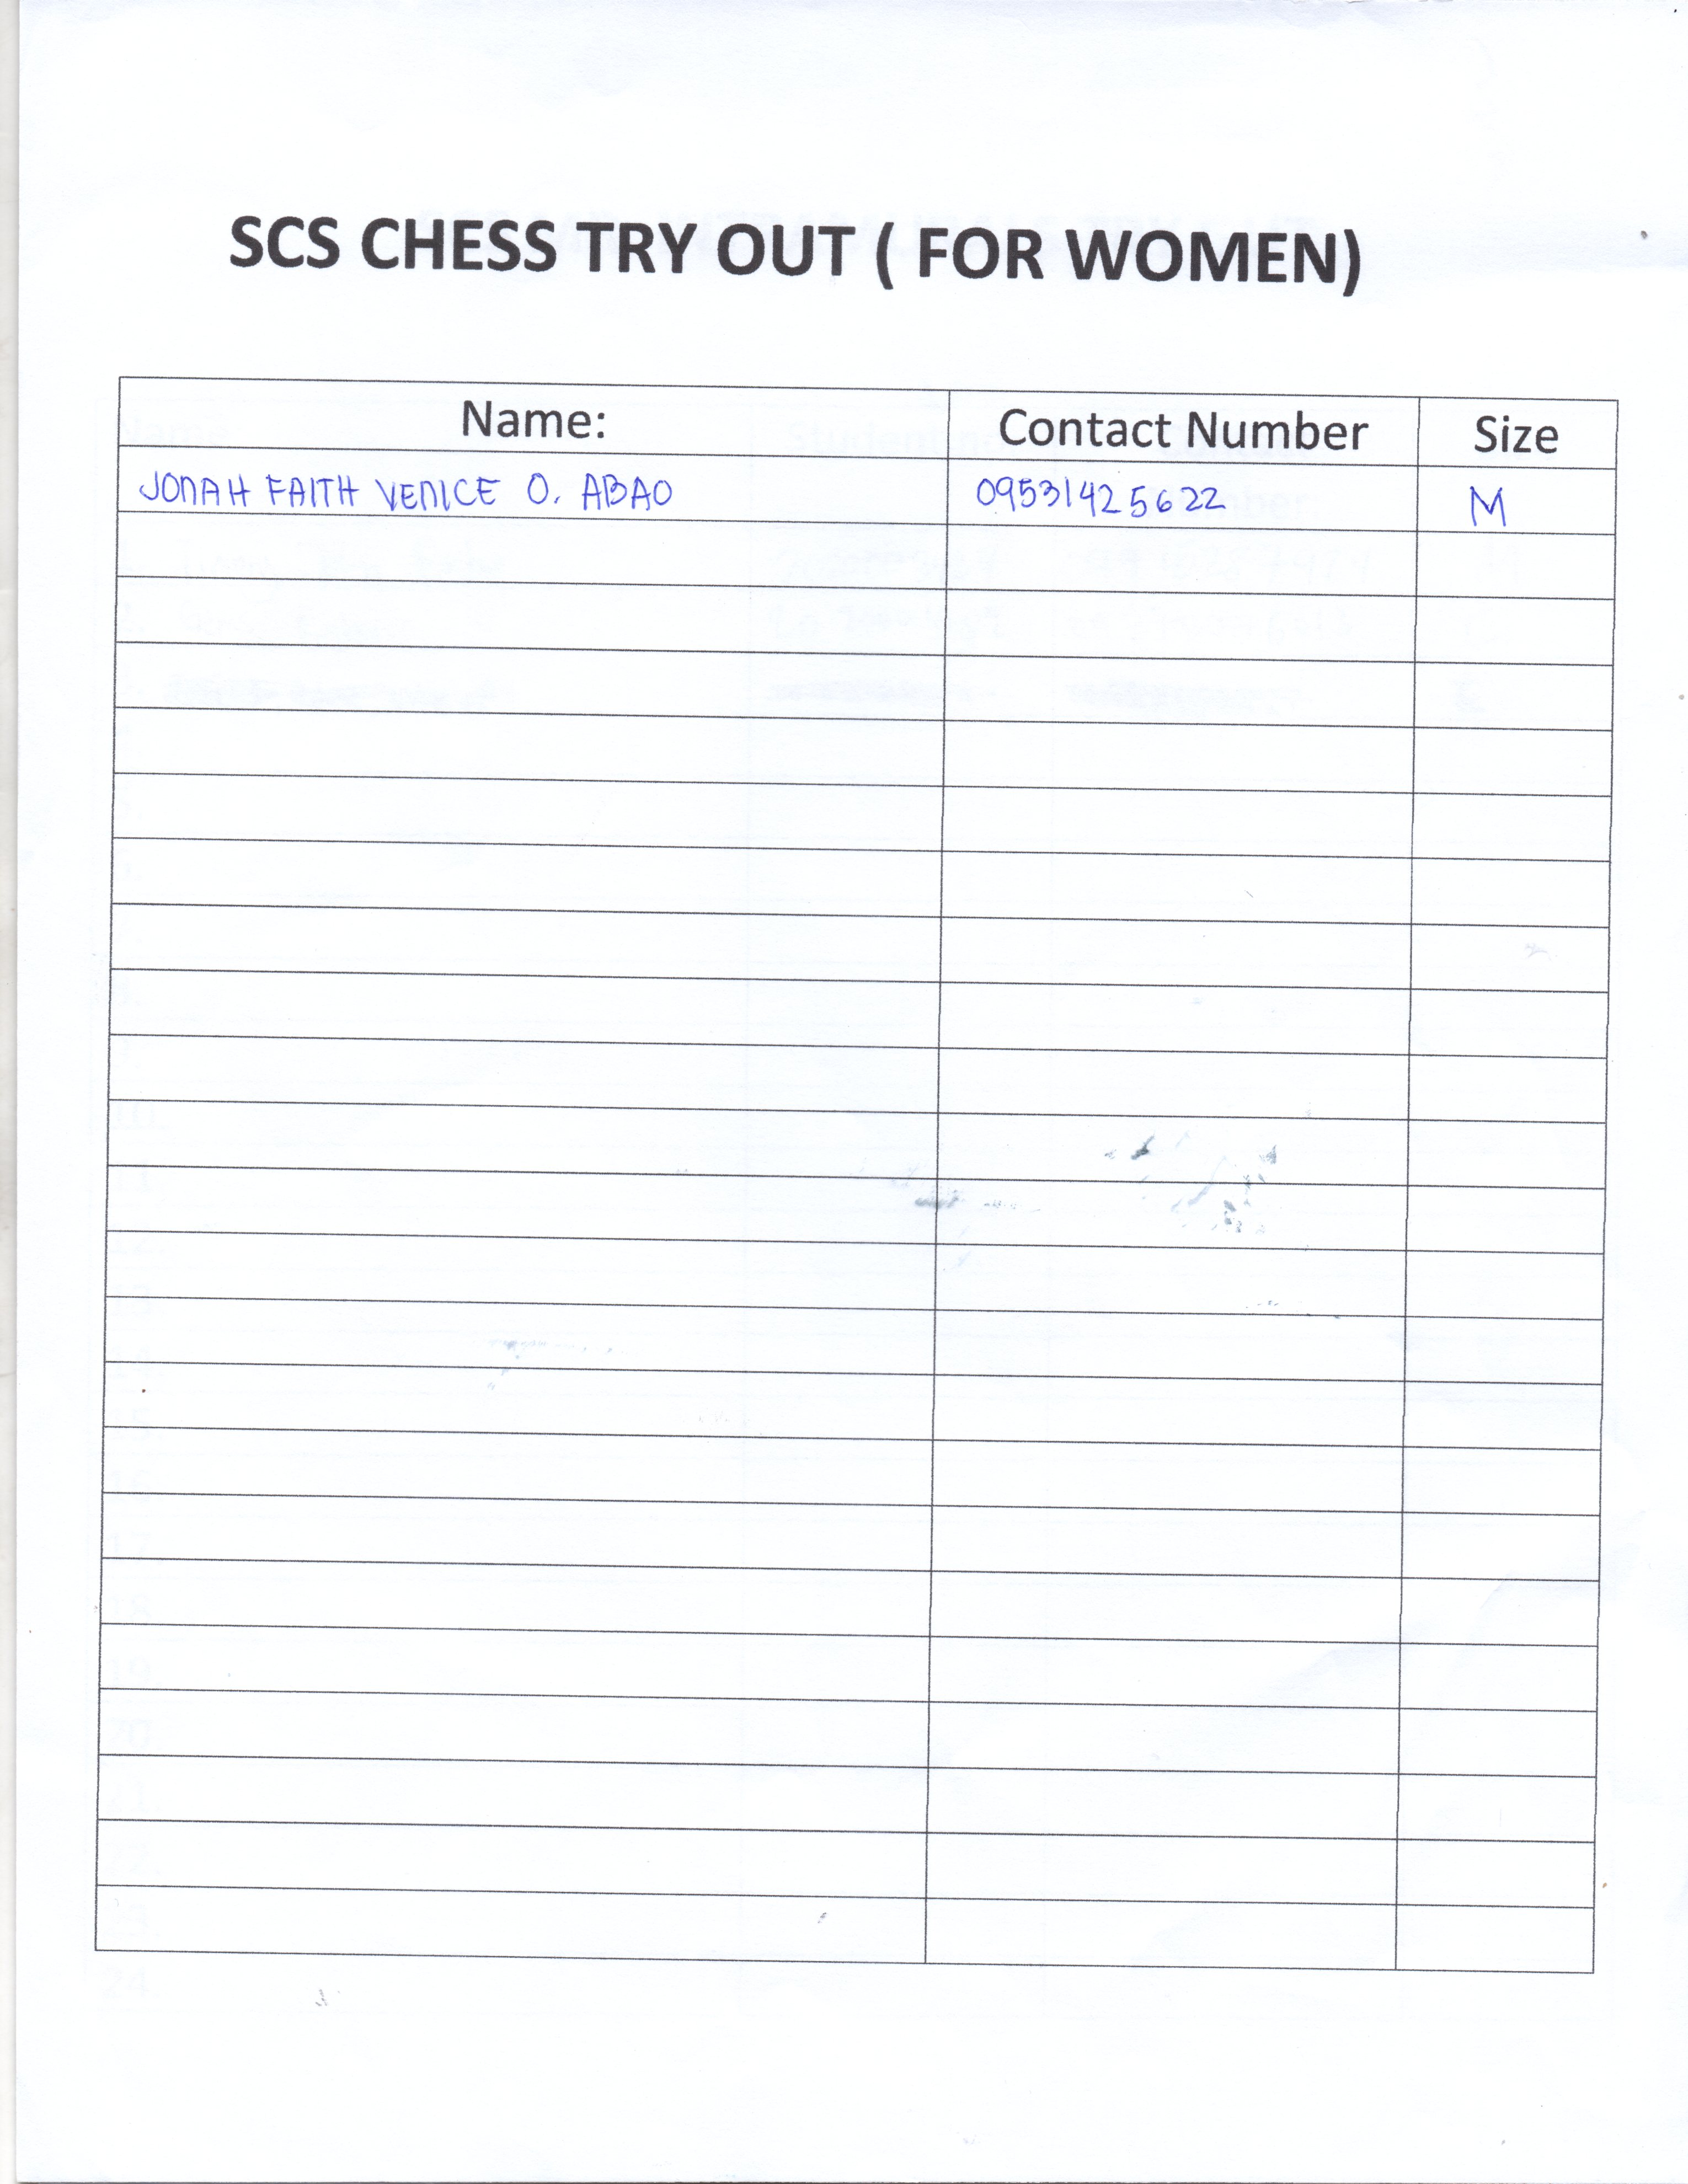 SCS CHESS TRY OUT ( FOR WOMEN)
Name: Contact Number Size
JONAH FAITH VENICE O. ABAO 09531425622 M